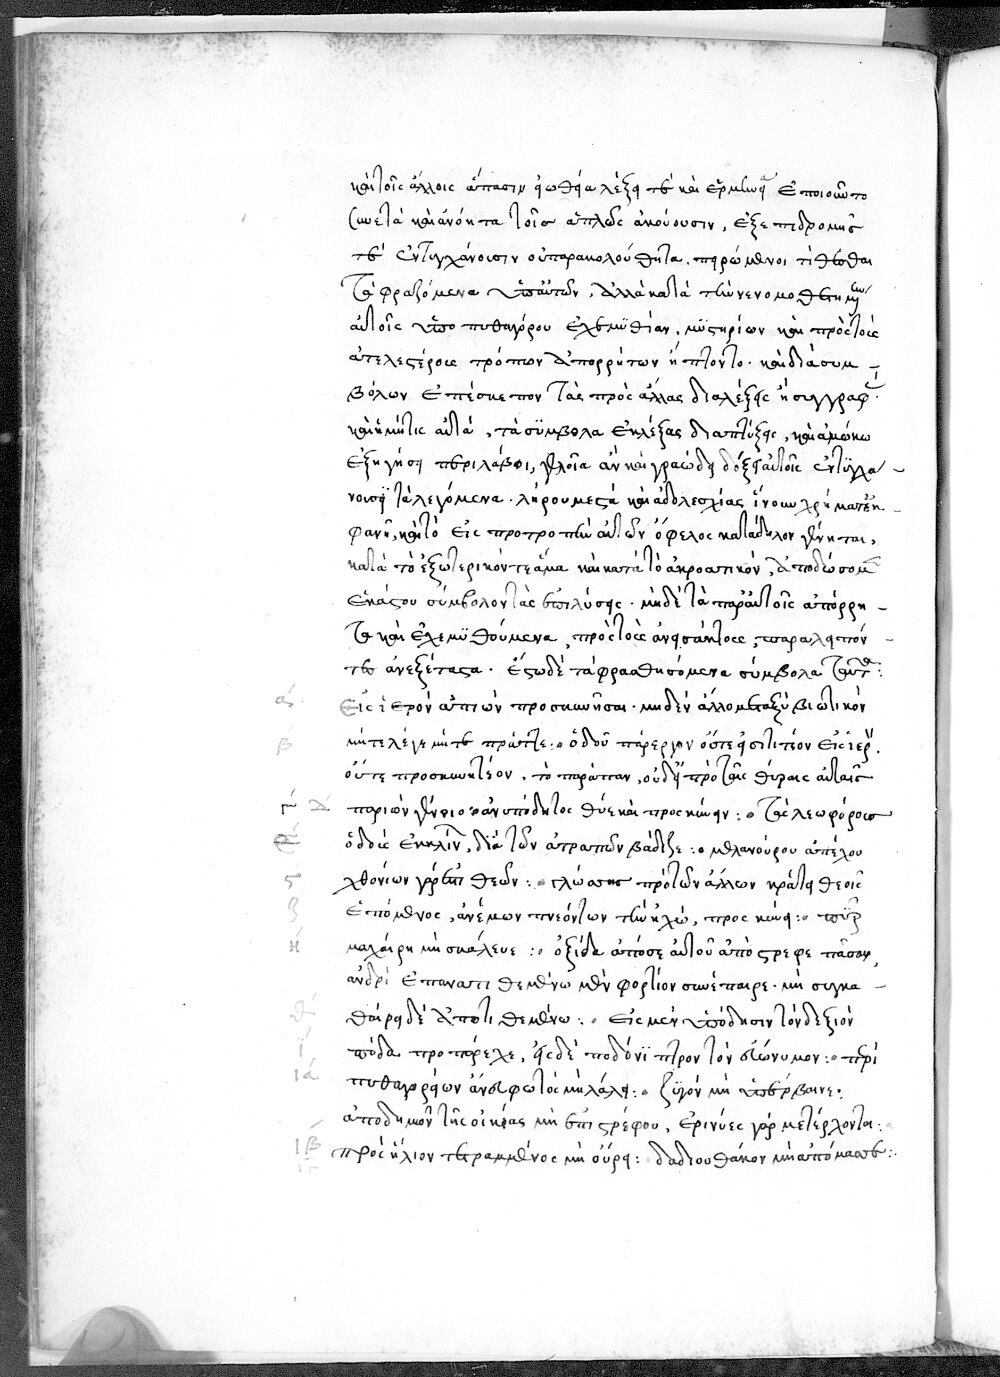 καὶ τοῖς ἄλλοις ἅπασιν ᾠήθεια λέξει τε καὶ ἑρμηνεία ἐποιοῦντο
ξυνετὰ καὶ ἀνόητα τοῖς ἁπλῶς ἀκούουσιν, ἐξ ἐπιδρομῆς
τε ἐντυγχάνουσιν οὐ παρακολούθητα. πειρώμενοι τίθεσθαι
τὰ φραζόμενα ὑπ' αὐτῶν, ἀλλὰ κατὰ τὴν νενομοθετημένην
αὐτοῖς ὑπὸ πυθαγόρου ἐχεμυθίαν, μυστηρίων καὶ πρὸς τοὺς
ἀτελεστέρους τρόπων ἀπορρήτων ἥπτοντο. καὶ διὰ συμ-
βόλων ἐπέσκεπον τὰς πρὸς ἀλλήλας διαλέξεις ἢ συγγραφάς.
καὶ εἰ μή τις αὐτὰ, τὰ σύμβολα ἐκλέξας διαπτύξει, καὶ ἀμώκῳ
ἐξηγήσει περιλάβοι, γελοῖα ἂν καὶ γραώδη δόξει αὐτοῖς ἐντυγχά-
νουσι τὰ λεγόμενα. λήρου μεστὰ καὶ ἀδολεσχίας ἵν' οὖν χρήματα ἐκ-
φανῆ, καὶ τὸ εἰς προτροπὴν αὐτῶν ὄφελος κατάδηλον γένηται,
κατὰ τὸ ἐξωτερικόν τε ἅμα καὶ κατὰ τὸ ἀκροατικὸν, ἀποδώσομεν
ἑκάστου σύμβολον τὰς ἐπιλύσεις. μηδὲ τὰ παρ' αὐτοῖς ἀπόρρη-
τα καὶ ἐχεμυθούμενα, πρὸς τοὺς ἀνεισάκτους, παραλειπόν-
τες ἀνεξέταστα. ἔστω δὲ τὰ φρασθησόμενα σύμβολα ταῦτα:
α. εἰς ἱερὸν ἀπιὼν προσκυνῆσαι. μηδὲν ἄλλο μεταξὺ βιωτικὸν
β μήτε λέγε μήτε πράττε: ὁδοῦ πάρεργον οὔτε εἰσιτητέον εἰς ἱερὸν.
οὔτε προσκυνητέον. τὸ παράπαν, οὐδ' εἰ πρὸ ταῖς θύραις αὐταῖς
γ δ παριὼν γένοιο ἀνυπόδητος θύε καὶ προσκύνει: τὰς λεωφόρους
ε ὁδοὺς ἐκκλίνων, διὰ τῶν ἀτραπῶν βάδιζε: μελανούρου ἀπέχου
ϛ χθονίων γάρ ἐστι θεῶν: γλώσσης πρὸ τῶν ἄλλων κράτει θεοῖς
ζ ἑπόμενος, ἀνέμων πνεόντων τὴν ἠχὼ, προσκύνει: πῦρ
η μαχαίρῃ μὴ σκάλευε: ὀξίδα ἀπὸ σεαυτοῦ ἀπόστρεφε πᾶσαν,
ἀνδρὶ ἐπανατιθεμένῳ μὲν φορτίον συνέπαιρε. μὴ συγκα-
θ θαίρει δὲ ἀποτιθεμένῳ: εἰς μὲν ὑπόδησιν τὸν δεξιὸν
ι πόδα προπάρεχε, εἰς δὲ ποδόνιπτρον τὸν εὐώνυμον: περὶ
ια πυθαγορείων ἄνευ φωτὸς μὴ λάλει: ζυγὸν μὴ ὑπέρβαινε.
ἀποδημῶν τῆς οἰκείας μὴ ἐπιστρέφου, ἐρινύες γὰρ μετέρχονται:
ιβ πρὸς ἥλιον τετραμμένος μὴ οὔρει: δαδίῳ θᾶκον μὴ ἀπόμασσε: